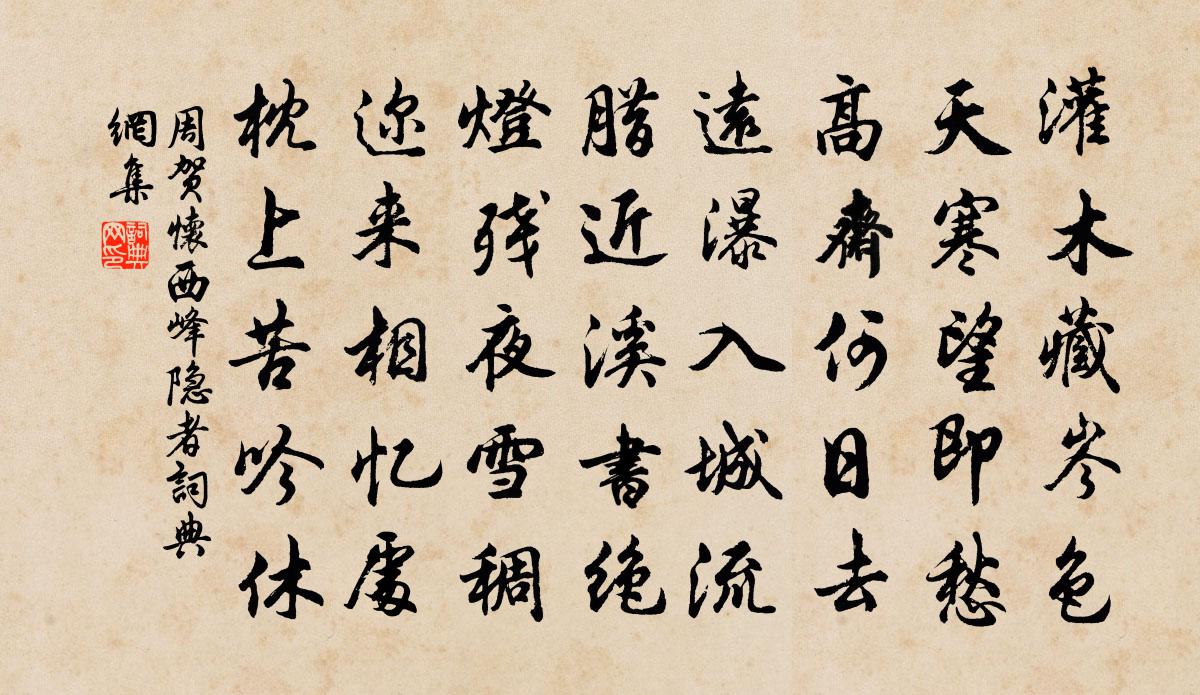 灌木藏岑色
天寒望即愁
高齋何日去
遠瀑入城流
腊近溪書绝
燈残夜雪稠
迩来相忆處
枕上苦吟休
周贺懷西峰隐者詞典
網集
詞典
网印